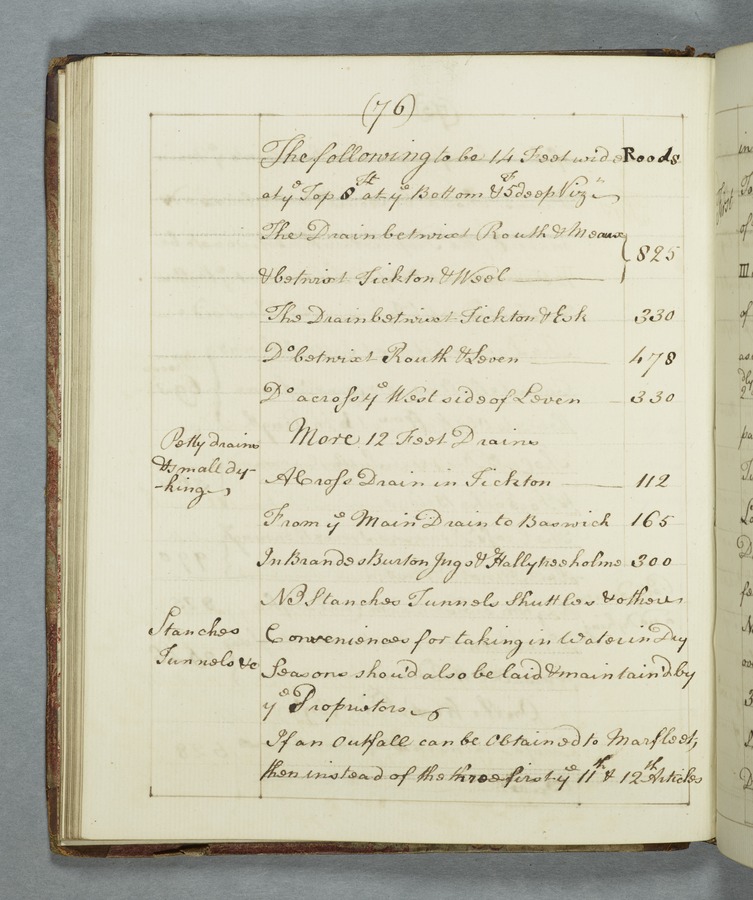 (76)
The following to be 14 Feet wide Roods
at yᵉ Top 8 ᶠᵗ at yᵉ Bottom & 5 ᶠ deep Vizᵗ
The Drain betwixt Routh & Meaux
825
& betwixt Tickton & Weel
The Drain betwixt Tickton & Esk 330
Dº betwixt Routh & Leven 478
Dº across yᵉ West side of Leven 330
More 12 Feet Drains
Petty drains
& small dy-
-king
A Cross Drain in Tickton 112
From yᵉ Main Drain to Baswick 165
In Brandes Burton Ings & Hallytreeholme 300
NB Stanches Tunnels Shuttles & other
Stanches
Tunnels &c
Conveniences for taking in Water in Dry
Seasons shou'd also be laid & maintain'd by
yᵉ Proprietors
If an Outfall can be Obtained to Marfleet,
then instead of the three first yᵉ 11ᵗʰ & 12ᵗʰ Articles
in
of
III
of
as
2
pa
D
fe
N
3
D